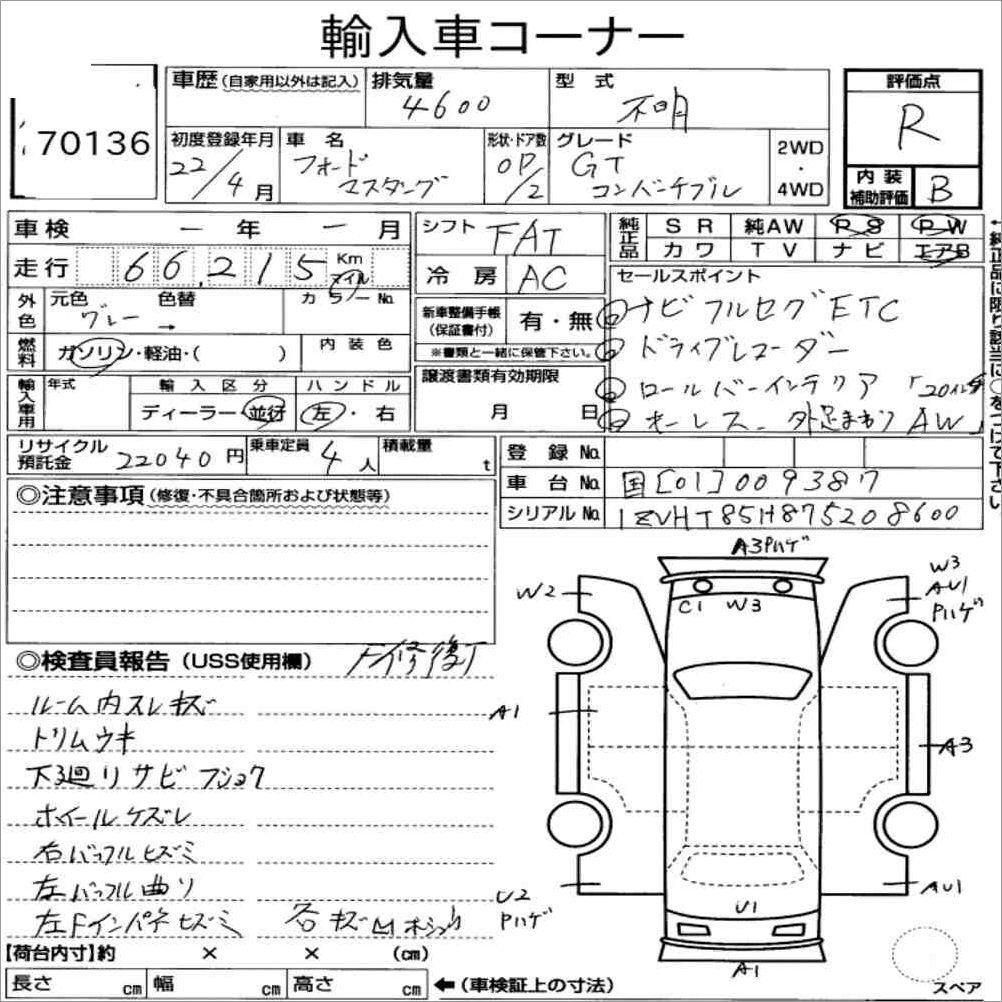 輸入車コーナー
70136
車歴 (自家用以外は記入)
排気量
4600
型式
不明
評価点
R
初度登録年月
22/4月
車名
フォード
マスタング
形状・ドア数
OP/2
グレード
GT
コンバーチブル
2WD
・
4WD
内装
補助評価
B
車検 ー 年 ー 月
シフト FAT
純正品
SR 純AW PS PW
カワ TV ナビ エアB
走行 66,215 Km マイル
冷房 AC
セールスポイント
①ナビ フルセグ ETC
②ドライブレコーダー
③ロールバーインテリア
外足まわり AW
外色
元色 グレー
色替 →
カラーNo.
新車整備手帳
(保証書付)
有・無
※書類と一緒に保管下さい。
燃料
ガソリン・軽油・( )
内装色
譲渡書類有効期限
月 日
輸入車用
年式
輸入区分
ディーラー・並行
ハンドル
左・右
リサイクル
預託金
22040円
乗車定員
4人
積載量
t
登録No.
車台No. 国[01]0093387
シリアルNo. 1ZVHT85H875208600
◎注意事項 (修復・不具合箇所および状態等)
◎検査員報告 (USS使用欄)
ルーム内スレキズ
トリムウキ
下廻りサビフショク
ホイールケズレ
右バッフルヒズミ
左バッフル曲り
左Fインパネヒズミ
各キズ凹
A3Pハゲ
W2
C1 W3
W3
AU1
Pハゲ
A1
A3
U2
Pハゲ
U1
AU1
A1
スペア
【荷台内寸】約 × × (cm)
長さ cm 幅 cm 高さ cm ←(車検証上の寸法)